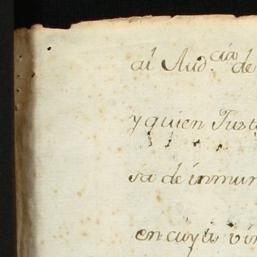 al Aud^cia de
y quien Just
sa de inmun
en cuya vir